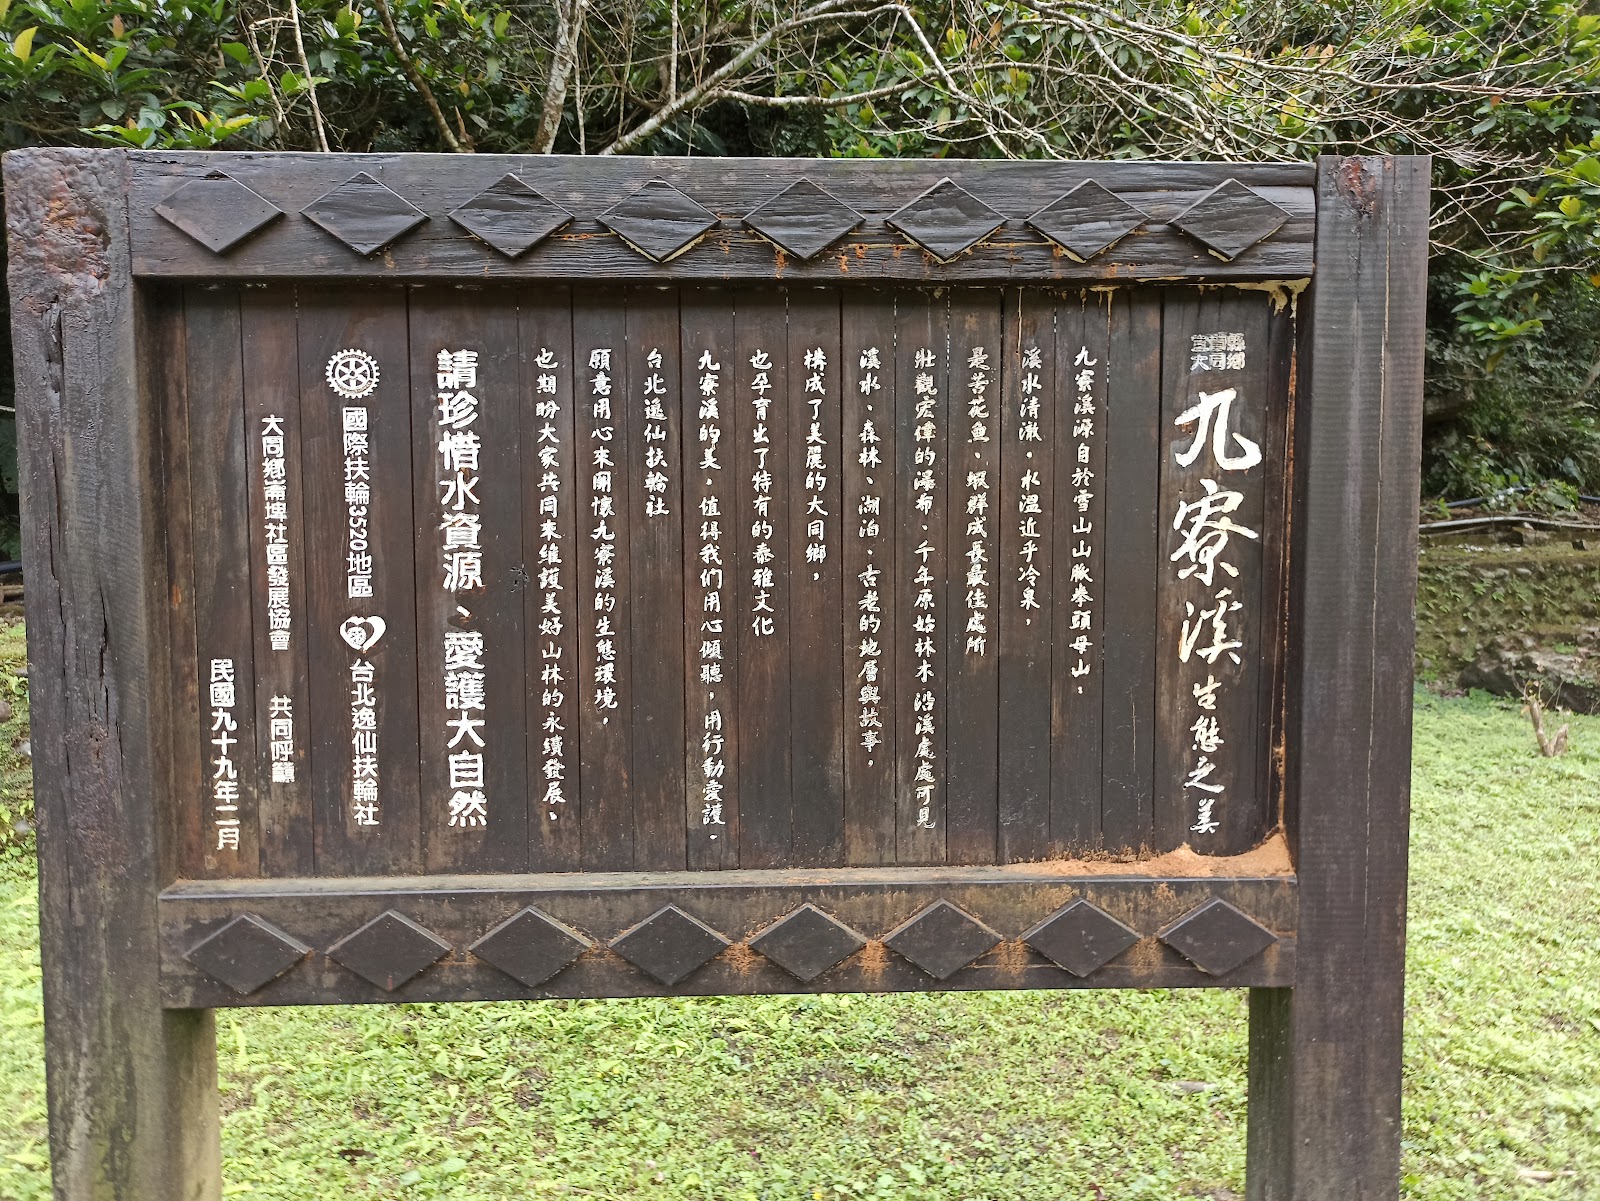 宜蘭縣
大同鄉
九寮溪生態之美
九寮溪源自於雪山山脈拳頭母山。
溪水清澈,水溫近乎冷泉,
是苦花魚、蝦群成長最佳處所
壯觀宏偉的瀑布、千年原始林木沿溪處處可見
溪水、森林、湖泊、古老的地層與故事,
構成了美麗的大同鄉,
也孕育出了特有的泰雅文化
九寮溪的美,值得我們用心傾聽,用行動愛護。
台北逸仙扶輪社
願意用心來關懷九寮溪的生態環境,
也期盼大家共同來維護美好山林的永續發展。
請珍惜水資源、愛護大自然
國際扶輪3520地區 台北逸仙扶輪社
大同鄉崙埤社區發展協會 共同呼籲
民國九十九年二月